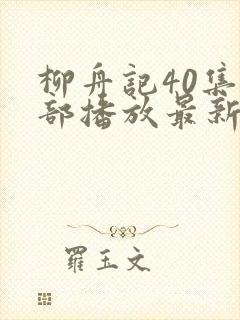 柳舟記40集
部播放最新
羅玉文